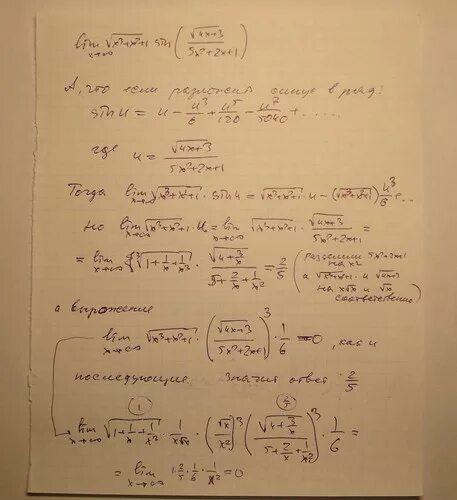 lim x→∞ √(x³+x²+1) sin(√(4x+3)/(5x²+2x+1))
А, что если разложить синус в ряд:
sin u = u − u³/6 + u⁵/120 − u⁷/5040 + .....
где u = √(4x+3)/(5x²+2x+1)
Тогда lim x→∞ √(x³+x²+1) · sin u = √(x³+x²+1) · u − (√(x³+x²+1)) u³/6 ...
но lim x→∞ √(x³+x²+1) · u = lim x→∞ √(x³+x²+1) · √(4x+3)/(5x²+2x+1) =
= lim x→∞ √(1+1/x+1/x³) · √(4+3/x)/(5+2/x+1/x²) = 2/5 (разделим 5x²+2x+1 на x² а √(x³+x²+1) и √(4x+3) на x√x и √x соответственно)
а выражение
lim x→∞ √(x³+x²+1) · (√(4x+3)/(5x²+2x+1))³ · 1/6 = 0, как и
последующие. Значит ответ 2/5
① (2/5)
lim x→∞ √(1+1/x+1/x³) · 1/(x√x) · (√x/x²)³ (√(4+3/x)/(5+2/x+1/x²))³ · 1/6 =
= lim x→∞ 1 · 2/5 · 1/6 · 1/x² = 0